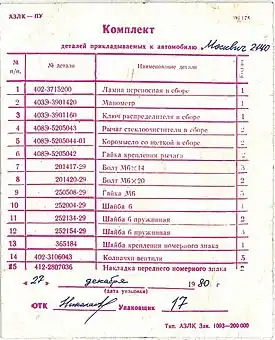 АЗЛК — ПУ
Комплект
деталей прикладываемых к автомобилю Москвич 2140
№ п/п. № детали Наименование детали
1 402-3715200 Лампа переносная в сборе 1
2 4033-3901420 Манометр 1
3 4033-3901160 Ключ распределителя в сборе 1
4 4083-5205043 Рычаг стеклоочистителя в сборе 2
5 4083-5205044-01 Коромысло со щеткой в сборе 2
6 4083-5205042 Гайка крепления рычага 2
7 201417-29 Болт М6×14 3
8 201420-29 Болт М6×20 2
9 250508-29 Гайка М6 5
10 252004-29 Шайба 6
11 252134-29 Шайба 6 пружинная 2
12 252154-29 Шайба 6 пружинная 3
13 365184 Шайба крепления номерного знака 1
14 402-3106043 Колпачки вентиля 5
15 412-2807036 Накладка переднего номерного знака 2
„ 27 “ декабря 1980 г.
(дата укладки)
ОТК Упаковщик 17
Тип. АЗЛК Зак. 1093—200 000